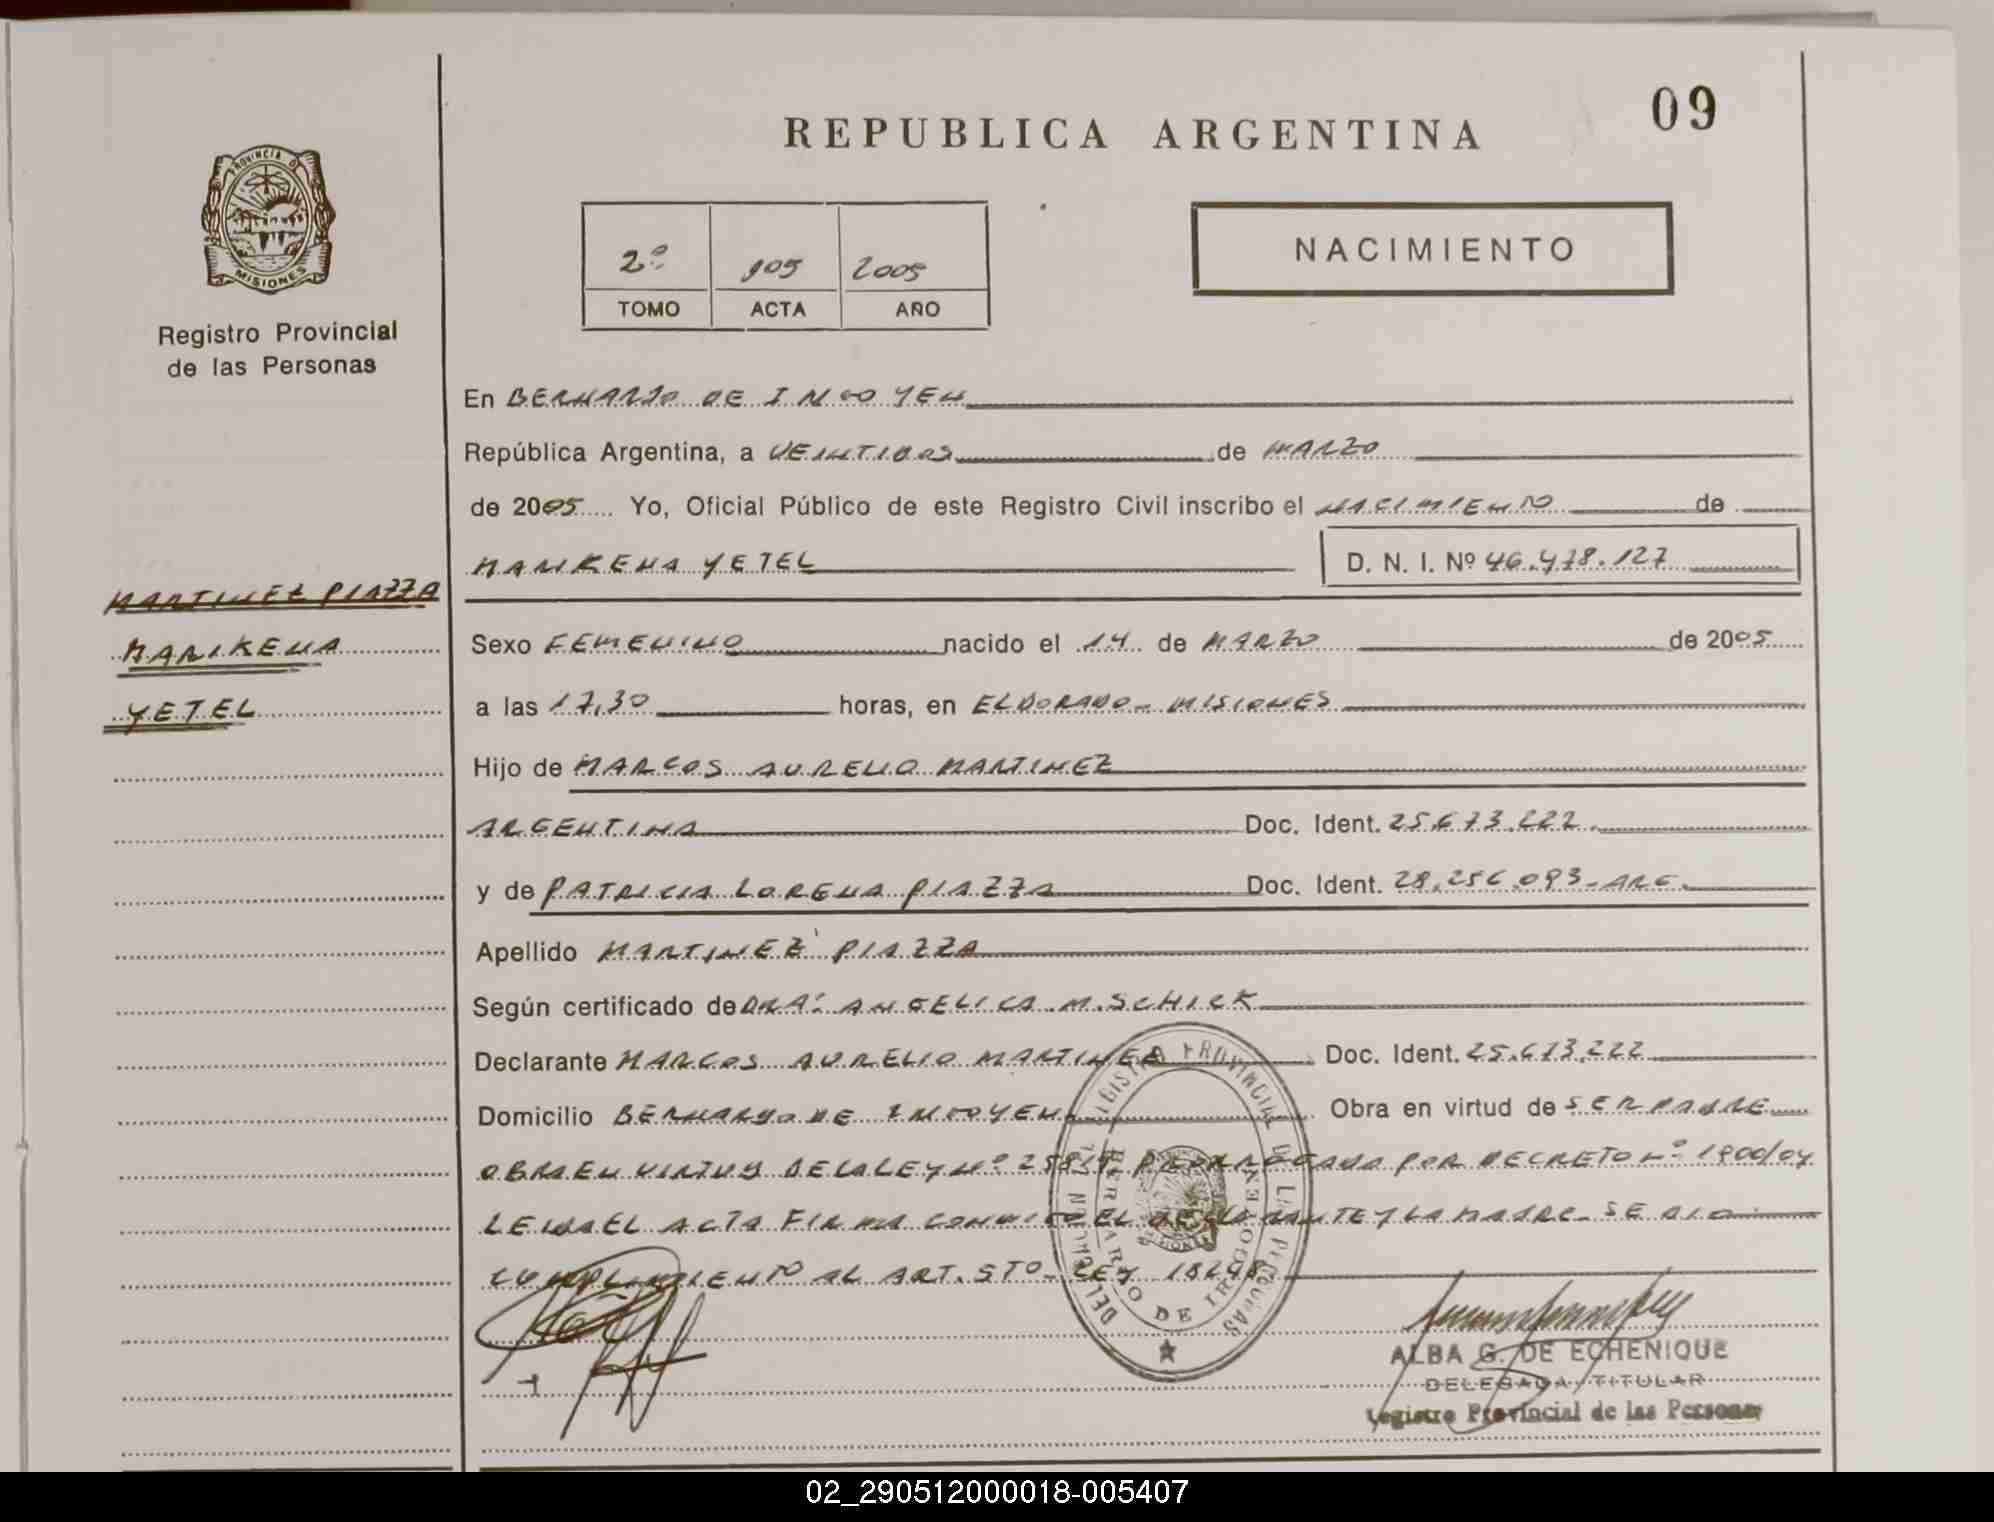 09
REPUBLICA ARGENTINA
PROVINCIA DE
MISIONES
Registro Provincial
de las Personas
2º 905 2005
TOMO ACTA AÑO
NACIMIENTO
En BERNARDO DE IRIGOYEN
República Argentina, a VEINTIDOS de MARZO
de 2005 Yo, Oficial Público de este Registro Civil inscribo el NACIMIENTO de
MARIKENA YETEL D. N. I. Nº 46.478.127
MARTINEZ PIAZZA
MARIKENA
YETEL
Sexo FEMENINO nacido el 14 de MARZO de 2005
a las 17,30 horas, en ELDORADO - MISIONES
Hijo de MARCOS AURELIO MARTINEZ
ARGENTINA Doc. Ident. 25.673.222
y de PATRICIA LORENA PIAZZA Doc. Ident. 28.256.093-ARG.
Apellido MARTINEZ PIAZZA
Según certificado de DRA. ANGELICA.M.SCHICK
Declarante MARCOS AURELIO MARTINEZ Doc. Ident. 25.673.222
Domicilio BERNARDO DE IRIGOYEN Obra en virtud de SER PADRE
OBRA EN VIRTUD DE LA LEY Nº PRORROGADA POR DECRETO Nº 1900/04
LEIDA EL ACTA FIRMA CONMIGO EL DECLARANTE Y LA MADRE- SE DIO
CUMPLIMIENTO AL ART. 5TO- LEY 18248
REGISTRO PROVINCIAL DE LAS PERSONAS
BERNARDO DE IRIGOYEN
MISIONES
ALBA G. DE ECHENIQUE
DELEGADA TITULAR
Registro Provincial de las Personas
02_290512000018-005407